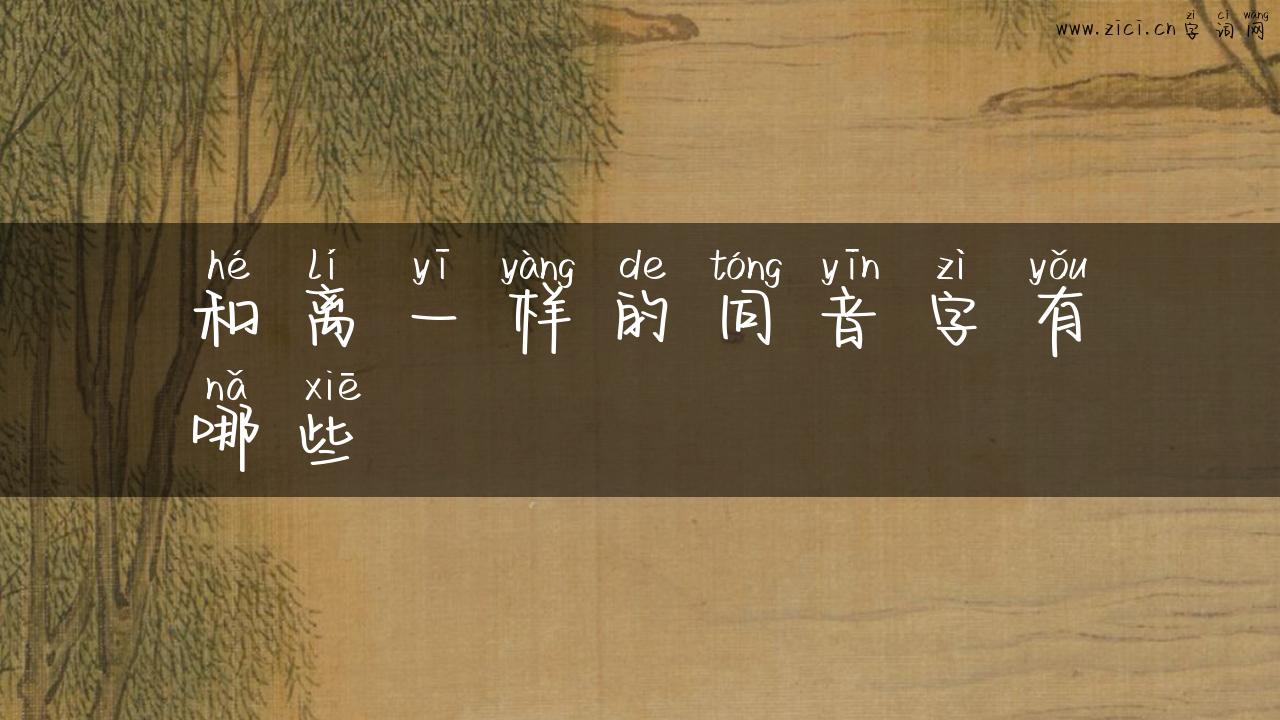 zì cí wǎng
www.zici.cn 字词网
hé lí yī yàng de tóng yīn zì yǒu
和离一样的同音字有
nǎ xiē
哪些